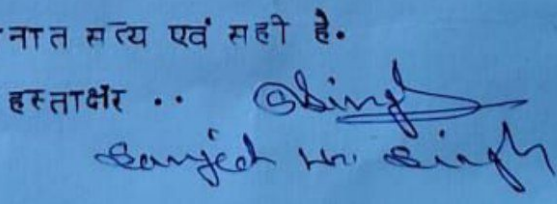 नात सत्य एवं सही है.
हस्ताक्षर .. Singh
Sanjeet kr. Singh